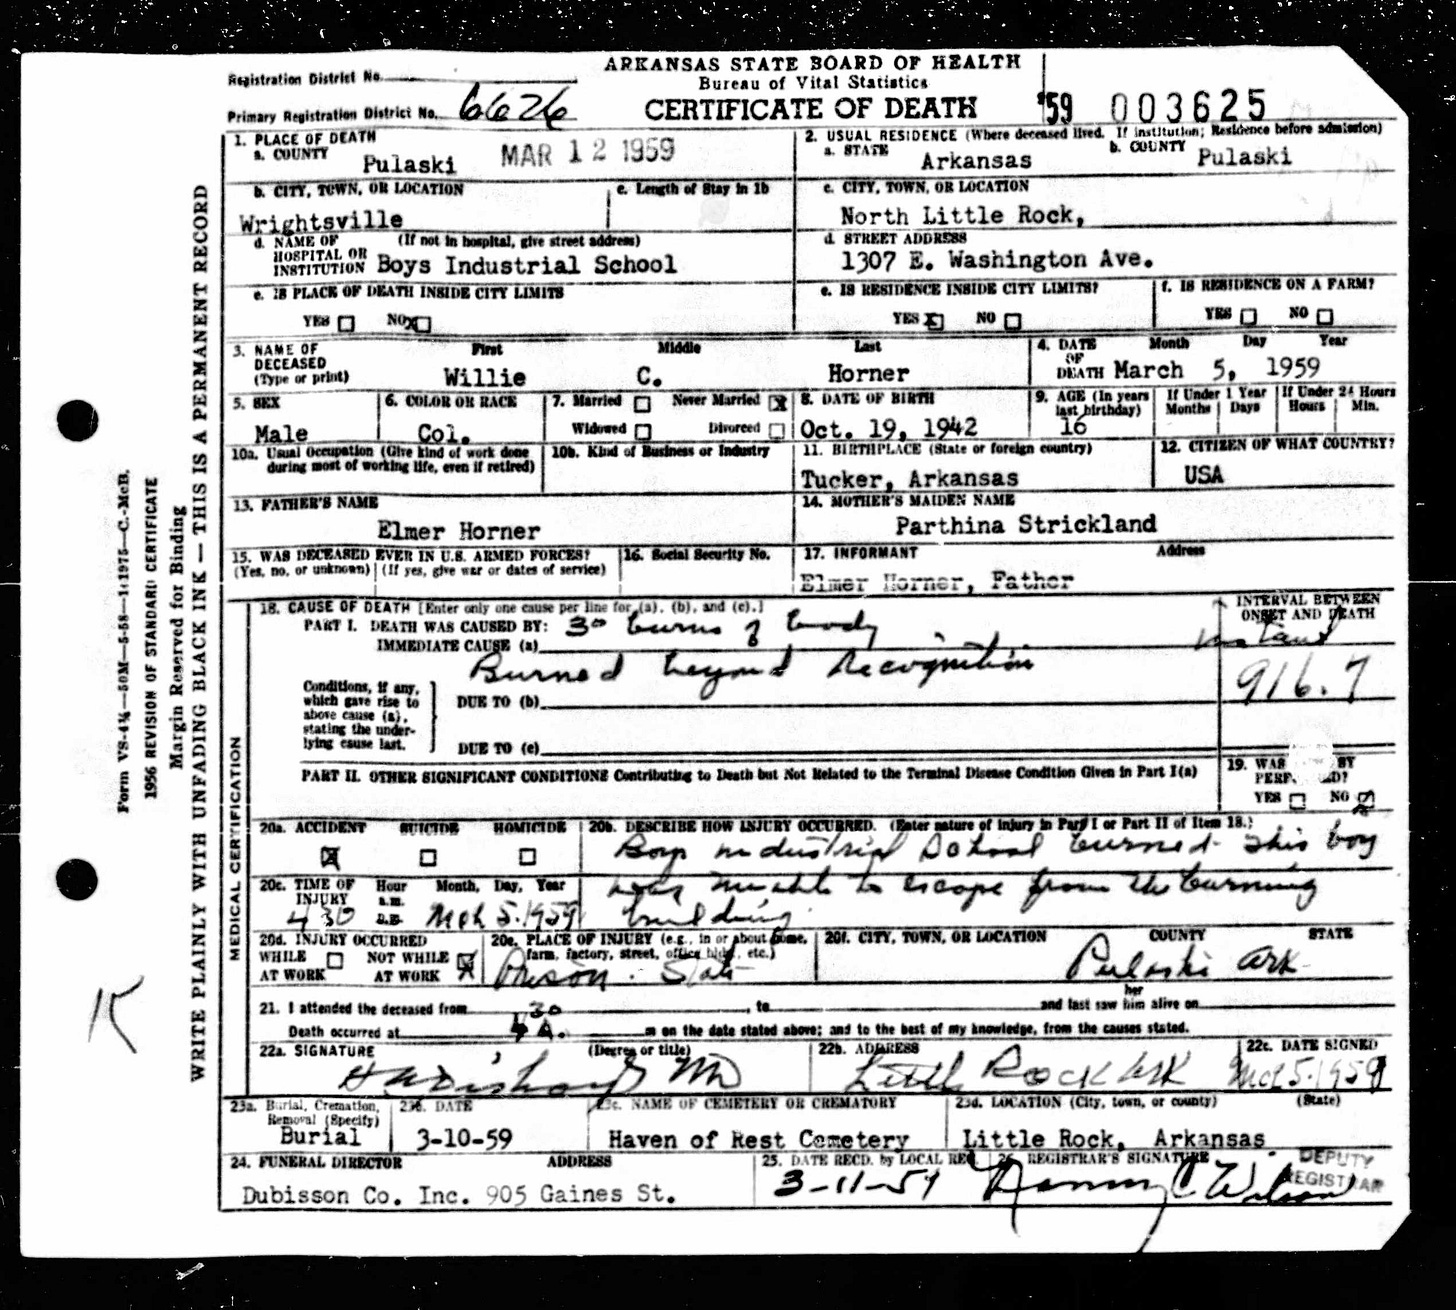 ARKANSAS STATE BOARD OF HEALTH
Bureau of Vital Statistics
CERTIFICATE OF DEATH
Registration District No.
Primary Registration District No. 6626
'59 003625
1. PLACE OF DEATH
a. COUNTY Pulaski
MAR 12 1959
2. USUAL RESIDENCE (Where deceased lived. If institution; Residence before admission)
a. STATE Arkansas b. COUNTY Pulaski
b. CITY, TOWN, OR LOCATION
Wrightsville
c. Length of Stay in 1b
c. CITY, TOWN, OR LOCATION
North Little Rock,
d. NAME OF HOSPITAL OR INSTITUTION (If not in hospital, give street address)
Boys Industrial School
d. STREET ADDRESS
1307 E. Washington Ave.
e. IS PLACE OF DEATH INSIDE CITY LIMITS
YES NO x
e. IS RESIDENCE INSIDE CITY LIMITS?
YES x NO
f. IS RESIDENCE ON A FARM?
YES NO
3. NAME OF DECEASED (Type or print)
First Middle Last
Willie C. Horner
4. DATE OF DEATH Month Day Year
March 5, 1959
5. SEX
Male
6. COLOR OR RACE
Col.
7. Married Never Married x
Widowed Divorced
8. DATE OF BIRTH
Oct. 19, 1942
9. AGE (In years last birthday)
16
If Under 1 Year
Months Days
If Under 24 Hours
Hours Min.
10a. Usual Occupation (Give kind of work done during most of working life, even if retired)
10b. Kind of Business or Industry
11. BIRTHPLACE (State or foreign country)
Tucker, Arkansas
12. CITIZEN OF WHAT COUNTRY?
USA
13. FATHER'S NAME
Elmer Horner
14. MOTHER'S MAIDEN NAME
Parthina Strickland
15. WAS DECEASED EVER IN U.S. ARMED FORCES?
(Yes, no, or unknown) (If yes, give war or dates of service)
16. Social Security No.
17. INFORMANT Address
Elmer Horner, Father
18. CAUSE OF DEATH [Enter only one cause per line for (a), (b), and (c).]
INTERVAL BETWEEN ONSET AND DEATH
PART I. DEATH WAS CAUSED BY: 3° burns of body
IMMEDIATE CAUSE (a)
Instant
Burned beyond Recognition
916.7
Conditions, if any, which gave rise to above cause (a), stating the underlying cause last.
DUE TO (b)
DUE TO (c)
PART II. OTHER SIGNIFICANT CONDITIONS Contributing to Death but Not Related to the Terminal Disease Condition Given in Part I(a)
19. WAS BY
PERF
YES NO
20a. ACCIDENT SUICIDE HOMICIDE
20b. DESCRIBE HOW INJURY OCCURRED. (Enter nature of injury in Part I or Part II of Item 18.)
Boys industrial School burned. This boy
was unable to escape from the burning
building.
20c. TIME OF INJURY Hour a.m. p.m. Month, Day, Year
4 30 Mch 5. 1959
20d. INJURY OCCURRED
WHILE AT WORK NOT WHILE AT WORK
20e. PLACE OF INJURY (e.g., in or about home, farm, factory, street, office bldg., etc.)
Prison - State
20f. CITY, TOWN, OR LOCATION COUNTY STATE
Pulaski Ark
21. I attended the deceased from , to and last saw her him alive on
Death occurred at 4 30 A. m on the date stated above; and to the best of my knowledge, from the causes stated.
22a. SIGNATURE (Degree or title)
MD
22b. ADDRESS
Little Rock Ark
22c. DATE SIGNED
Mch 5. 1959
23a. Burial, Cremation, Removal (Specify)
Burial
23b. DATE
3-10-59
23c. NAME OF CEMETERY OR CREMATORY
Haven of Rest Cemetery
23d. LOCATION (City, town, or county) (State)
Little Rock, Arkansas
24. FUNERAL DIRECTOR ADDRESS
Dubisson Co. Inc. 905 Gaines St.
25. DATE RECD. by LOCAL REG.
3-11-59
26. REGISTRAR'S SIGNATURE
C Wilson
DEPUTY REGISTRAR
MEDICAL CERTIFICATION
WRITE PLAINLY WITH UNFADING BLACK INK — THIS IS A PERMANENT RECORD
Margin Reserved for Binding
1956 REVISION OF STANDARD CERTIFICATE
K